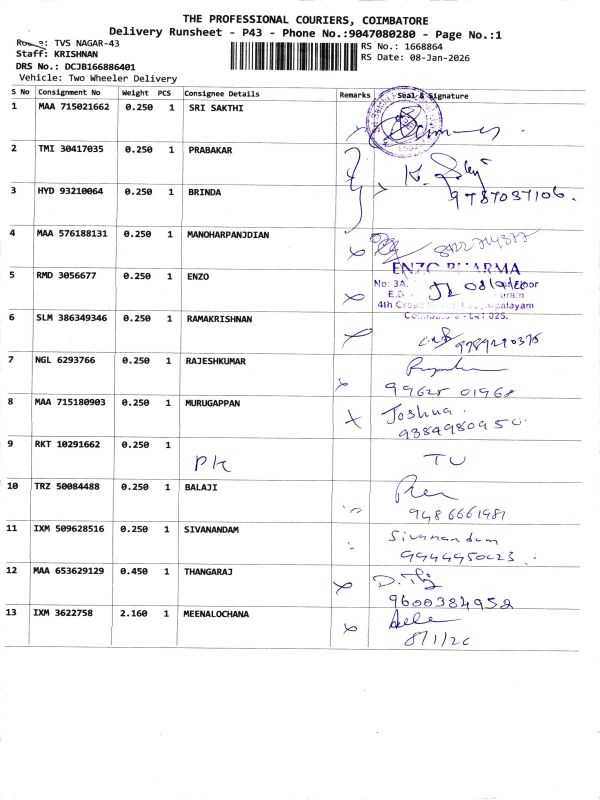 THE PROFESSIONAL COURIERS, COIMBATORE
Delivery Runsheet - P43 - Phone No.:9047080280 - Page No.:1
Route: TVS NAGAR-43
RS No.: 1668864
Staff: KRISHNAN
RS Date: 08-Jan-2026
DRS No.: DCJB166886401
Vehicle: Two Wheeler Delivery
S No Consignment No Weight PCS Consignee Details Remarks Seal & Signature
1 MAA 715021662 0.250 1 SRI SAKTHI
2 TMI 30417035 0.250 1 PRABAKAR
3 HYD 93210064 0.250 1 BRINDA 9787037106.
4 MAA 576188131 0.250 1 MANOHARPANJDIAN
ENZO PHARMA
5 RMD 3056677 0.250 1 ENZO
No: 3A,
4th Cross
6 SLM 386349346 0.250 1 RAMAKRISHNAN
7 NGL 6293766 0.250 1 RAJESHKUMAR
99625 01968
8 MAA 715180903 0.250 1 MURUGAPPAN Joshua.
9384980950
9 RKT 10291662 0.250 1
10 TRZ 50084488 0.250 1 BALAJI
9486661981
11 IXM 509628516 0.250 1 SIVANANDAM Sivanandam
9944950023
12 MAA 653629129 0.450 1 THANGARAJ
9600384952
13 IXM 3622758 2.160 1 MEENALOCHANA
8/1/26